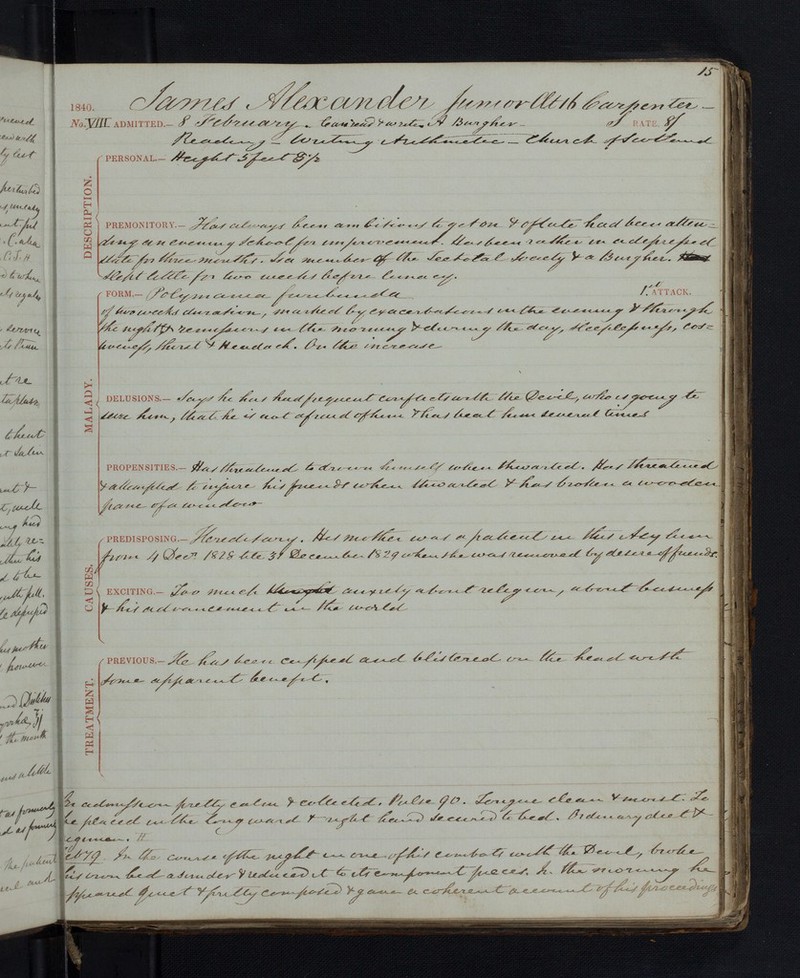 15
1840. James Alexander Junior Aet 16 Carpenter –
No. VIII ADMITTED.— 8 February – Can read & writes A Burgher – of RATE. 8/
Reading – Writing Arithmetic – Church of Scotland
DESCRIPTION.
PERSONAL.— Height 5 feet 5½
PREMONITORY.— Has always been ambitious to get on & of late had been atten=
ding an evening School for improvement. Has been rather in a depressed
state for three months. Is a member of the Teetotal Society & a Burgher.
Slept little for two weeks before lunacy.
MALADY.
FORM.— Polymania furibunda 1st ATTACK.
of two weeks duration, marked by exacerbations in the evening & through
the night & remissions in the morning & during the day, sleeplessness, cos=
tiveness, thirst & Headach. On the increase
DELUSIONS.— Says he has had frequent conflicts with the Devil, who is going to
seize him, that he is not afraid of him & has beat him several times
PROPENSITIES.— Has threatened to drown himself when thwarted. Has threatened
& attempted to injure his friends when thwarted & has broken a wooden
pane of a window
CAUSES.
PREDISPOSING.— Hereditary. His mother was a patient in this Asylum
from 4 Decr 1828 till 31 December 1829 when she was removed by desire of friends.
EXCITING.— Too much thought anxiety about religion, about business
& his advancement in the world
TREATMENT.
PREVIOUS.— He has been cupped and blistered on the head with
some apparent benefit.
On admission pretty calm & collected. Pulse 90. Tongue clean & moist. To
be placed in the long ward & right hand secured to bed. Ordinary diet &
regimen. //
9. In the course of the night in one of his combats with the Devil, broke
his own bed asunder & reduced it to its component pieces. In the morning he
appeared quiet & pretty composed & gave a coherent account of his proceedings